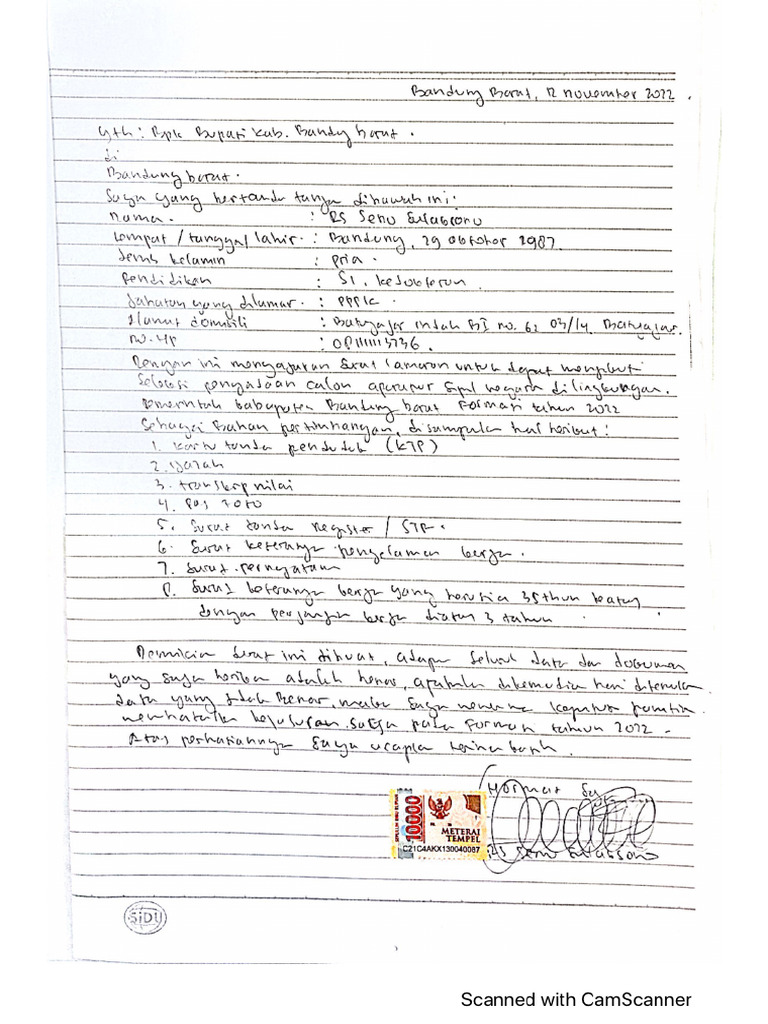 Bandung Barat, 12 november 2022.
yth : Bpk Bupati Kab. Bandung barat.
di
Bandung barat.
Saya yang bertanda tangan dibawah ini:
nama. : RS Seno
tempat / tanggal lahir. : Bandung, 29 oktober 1987.
Jenis kelamin : pria.
Pendidikan : S1. kedokteran.
Jabatan yang dilamar. : PPPK.
Alamat domisili : Batujajar indah BI no. 62 03/14. Batujajar.
no. HP :
Dengan ini mengajukan surat lamaran untuk dapat mengikuti
Seleksi pengadaan calon aparatur sipil negara dilingkungan.
Pemerintah kabupaten Bandung barat Formasi tahun 2022
Sebagai Bahan pertimbangan, disampaikan hal berikut:
1. Kartu tanda penduduk (KTP)
2. ijazah
3. transkrip nilai
4. Pas Foto
5. Surat tanda register / STR.
6. Surat keterangan pengalaman kerja.
7. Surat pernyataan
8. Surat keterangan kerja yang berusia 35 thun keatas
dengan perjanjian kerja diatas 3 tahun
Demikian surat ini dibuat, adapun seluruh data dan dokumen
yang saya berikan adalah benar, apabila dikemudian hari ditemukan
data yang tidak Benar, maka saya menerima keputusan panitia
membatalkan kelulusan saya pada Formasi tahun 2022.
Atas perhatiannya Saya ucapkan terima kasih.
Hormat Saya
10000
METERAI
TEMPEL
C21C4AKX130040087
RS Seno
SiDU
Scanned with CamScanner